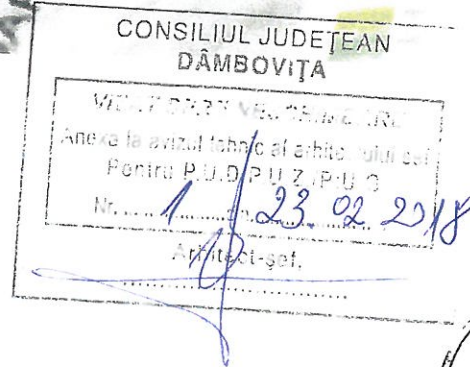 CONSILIUL JUDEȚEAN
DÂMBOVIȚA
VIZAT SPRE NESCHIMBARE
Anexa la avizul tehnic al arhitectului șef
Pentru P.U.D./P.U.Z./P.U.G
Nr. 1 / 23.02.2018
Arhitect-șef,